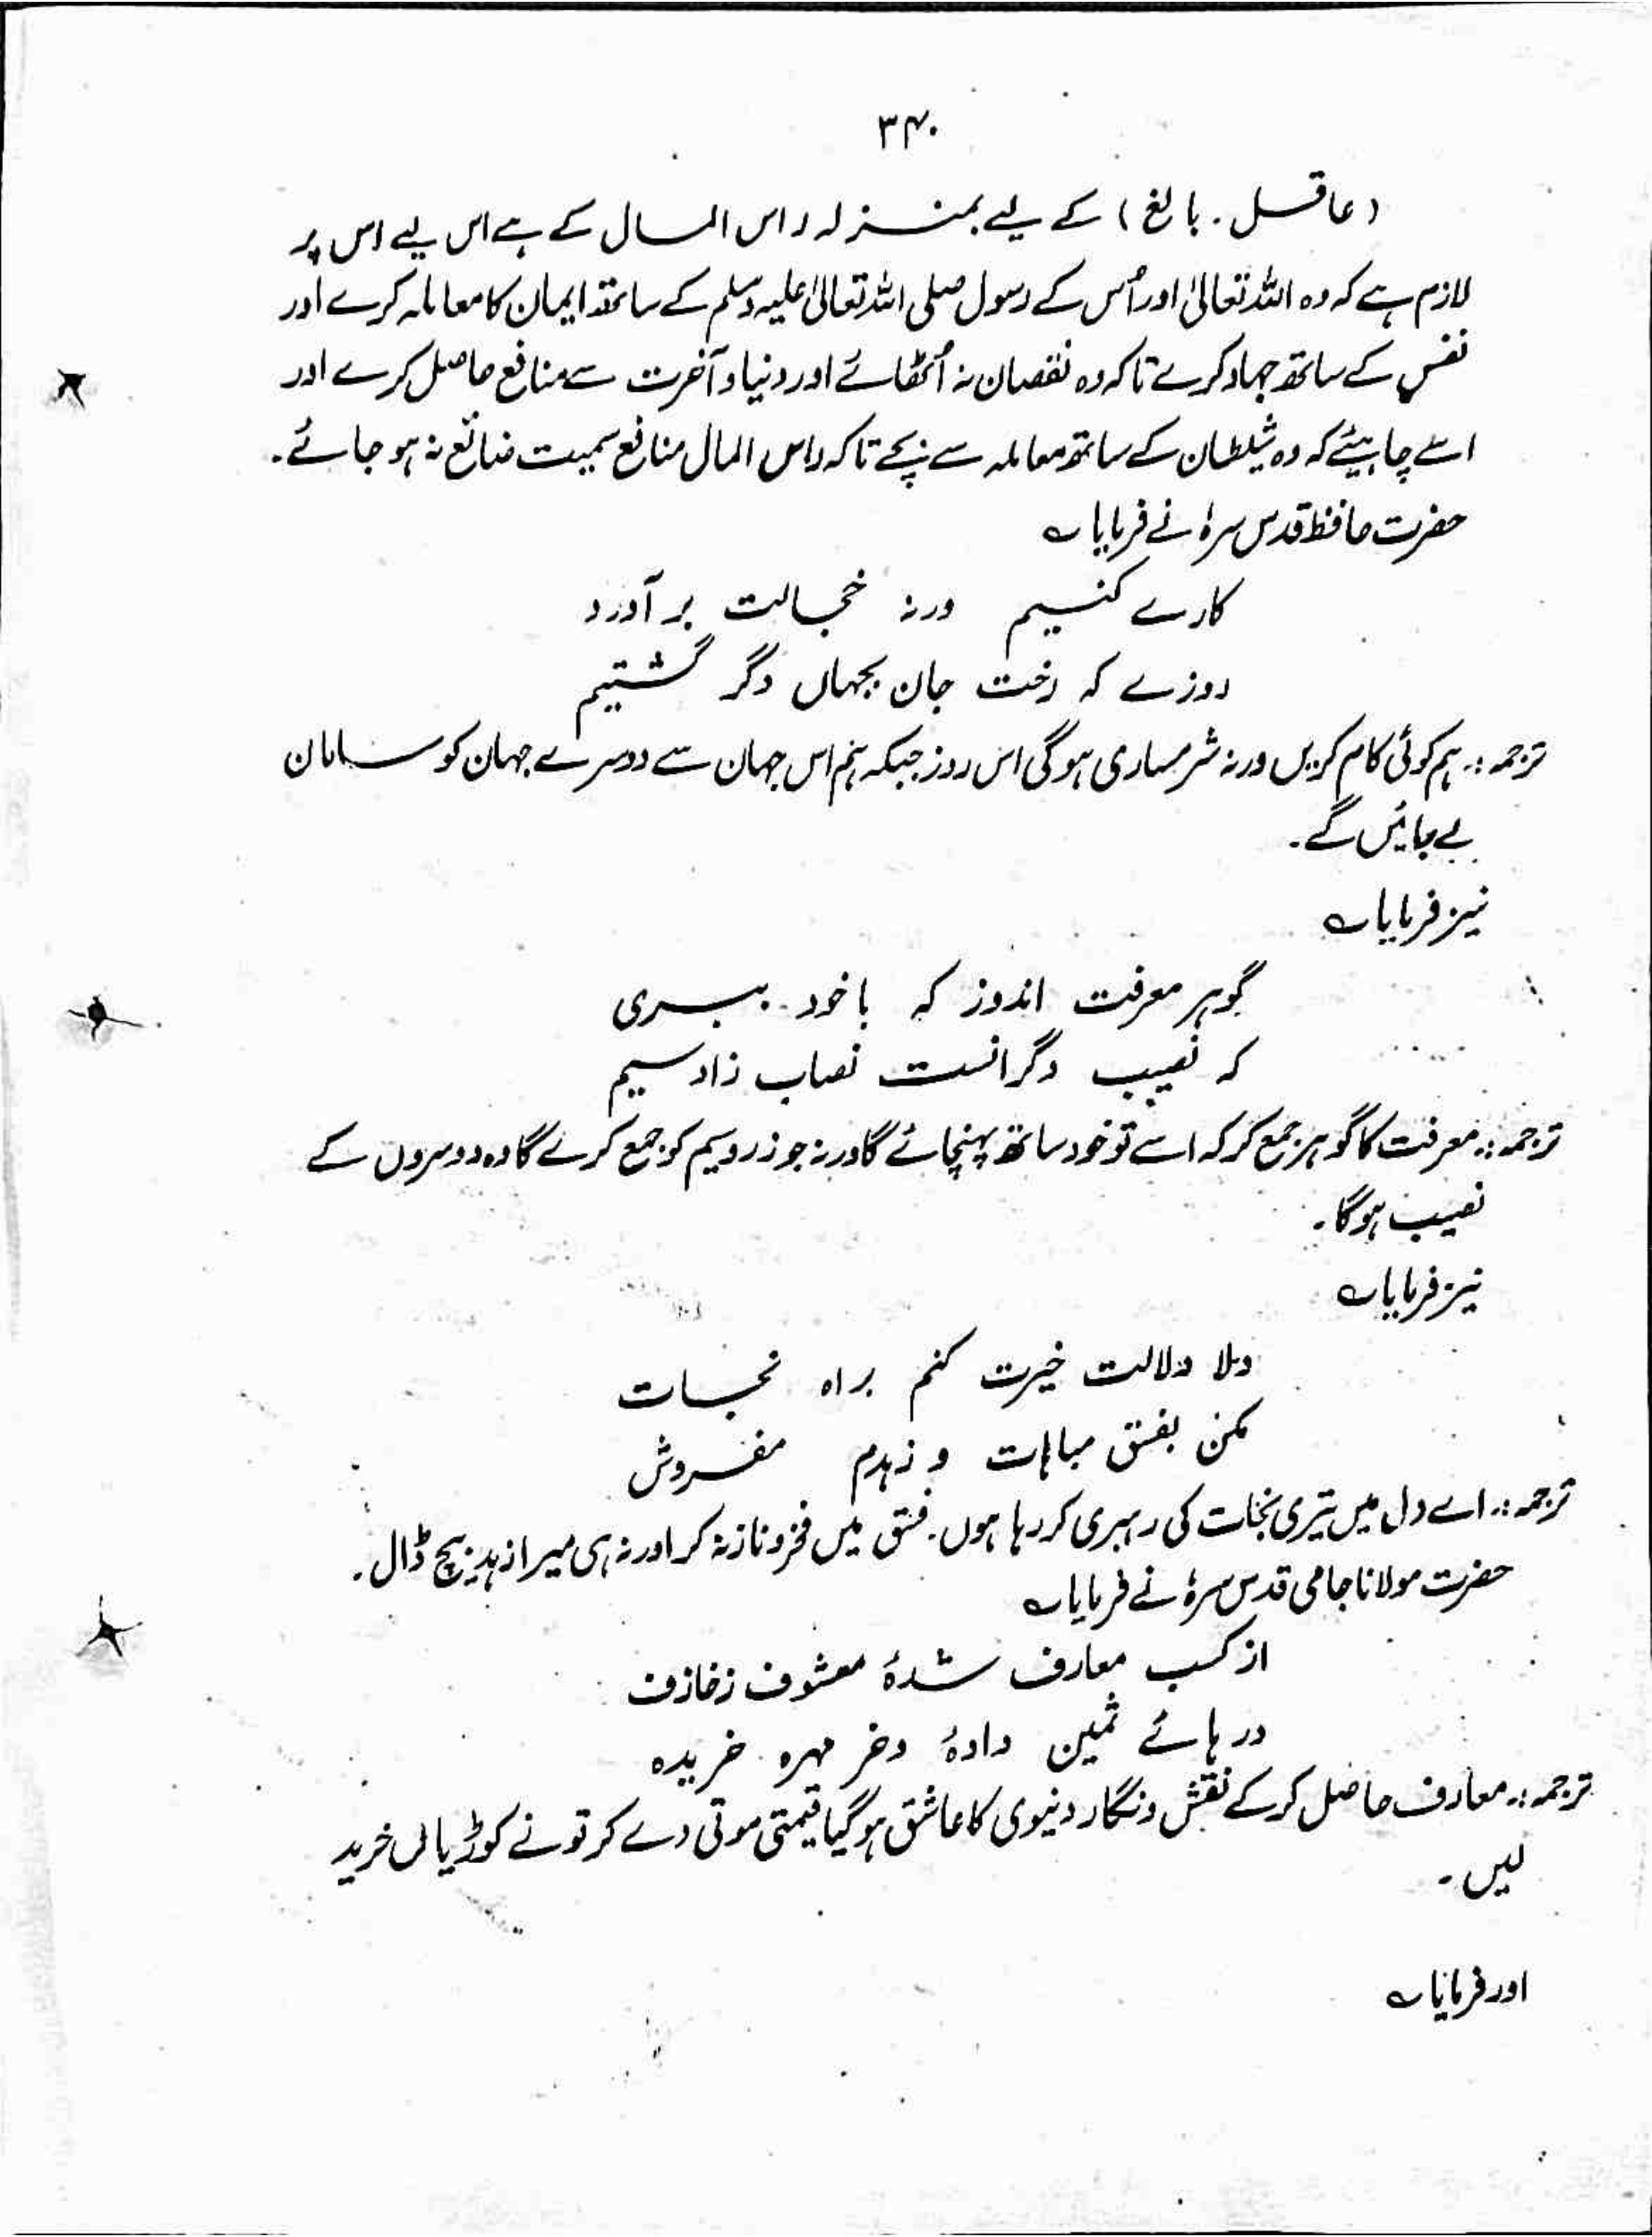 ۳۴۰
(عاقل۔ بالغ) کے لیے بمنزلہ راس المال کے ہے اس لیے اس پر
لازم ہے کہ وہ اللہ تعالیٰ اور اُس کے رسول صلی اللہ تعالیٰ علیہ وسلم کے ساتھ ایمان کا معاملہ کرے اور
نفس کے ساتھ جہاد کرے تاکہ وہ نقصان نہ اُٹھائے اور دنیا و آخرت سے منافع حاصل کرے اور
اسے چاہیئے کہ وہ شیطان کے ساتھ معاملہ سے بچے تاکہ راس المال منافع سمیت ضائع نہ ہو جائے۔
حضرت حافظ قدس سرہٗ نے فرمایا ؎
کارے کنیم ورنہ خجالت بر آورد
روزے کہ رخت جان بجہاں دگر گشتیم
ترجمہ:۔ ہم کوئی کام کریں ورنہ شرمساری ہوگی اس روز جبکہ ہم اس جہان سے دوسرے جہان کو سامان
لے جائیں گے۔
نیز فرمایا ؎
گوہر معرفت اندوز کہ باخود ببری
کہ نصیب دگرانست نصاب زاد سیم
ترجمہ:۔ معرفت کا گوہر جمع کر کہ اسے تو خود ساتھ پہنچائے گا ورنہ جو زر و سیم کو جمع کرے گا وہ دوسروں کے
نصیب ہوگا۔
نیز فرمایا ؎
دلا دلالت خیرت کنم براہ نجات
مکن بفسق مباہات و زہدم مفروش
ترجمہ:۔ اے دل میں تیری نجات کی رہبری کر رہا ہوں۔ فسق میں فخر و ناز نہ کر اور نہ ہی میرا زہد بیچ ڈال۔
حضرت مولانا جامی قدس سرہٗ نے فرمایا ؎
از کسب معارف شدۂ معشوف زخازف
در ہائے ثمین دادۂ وخر مہرہ خریدہ
ترجمہ:۔ معارف حاصل کر کے نقش و نگار دنیوی کا عاشق ہو گیا قیمتی موتی دے کر تو نے کوڑیاں خرید
لیں۔
اور فرمایا ؎